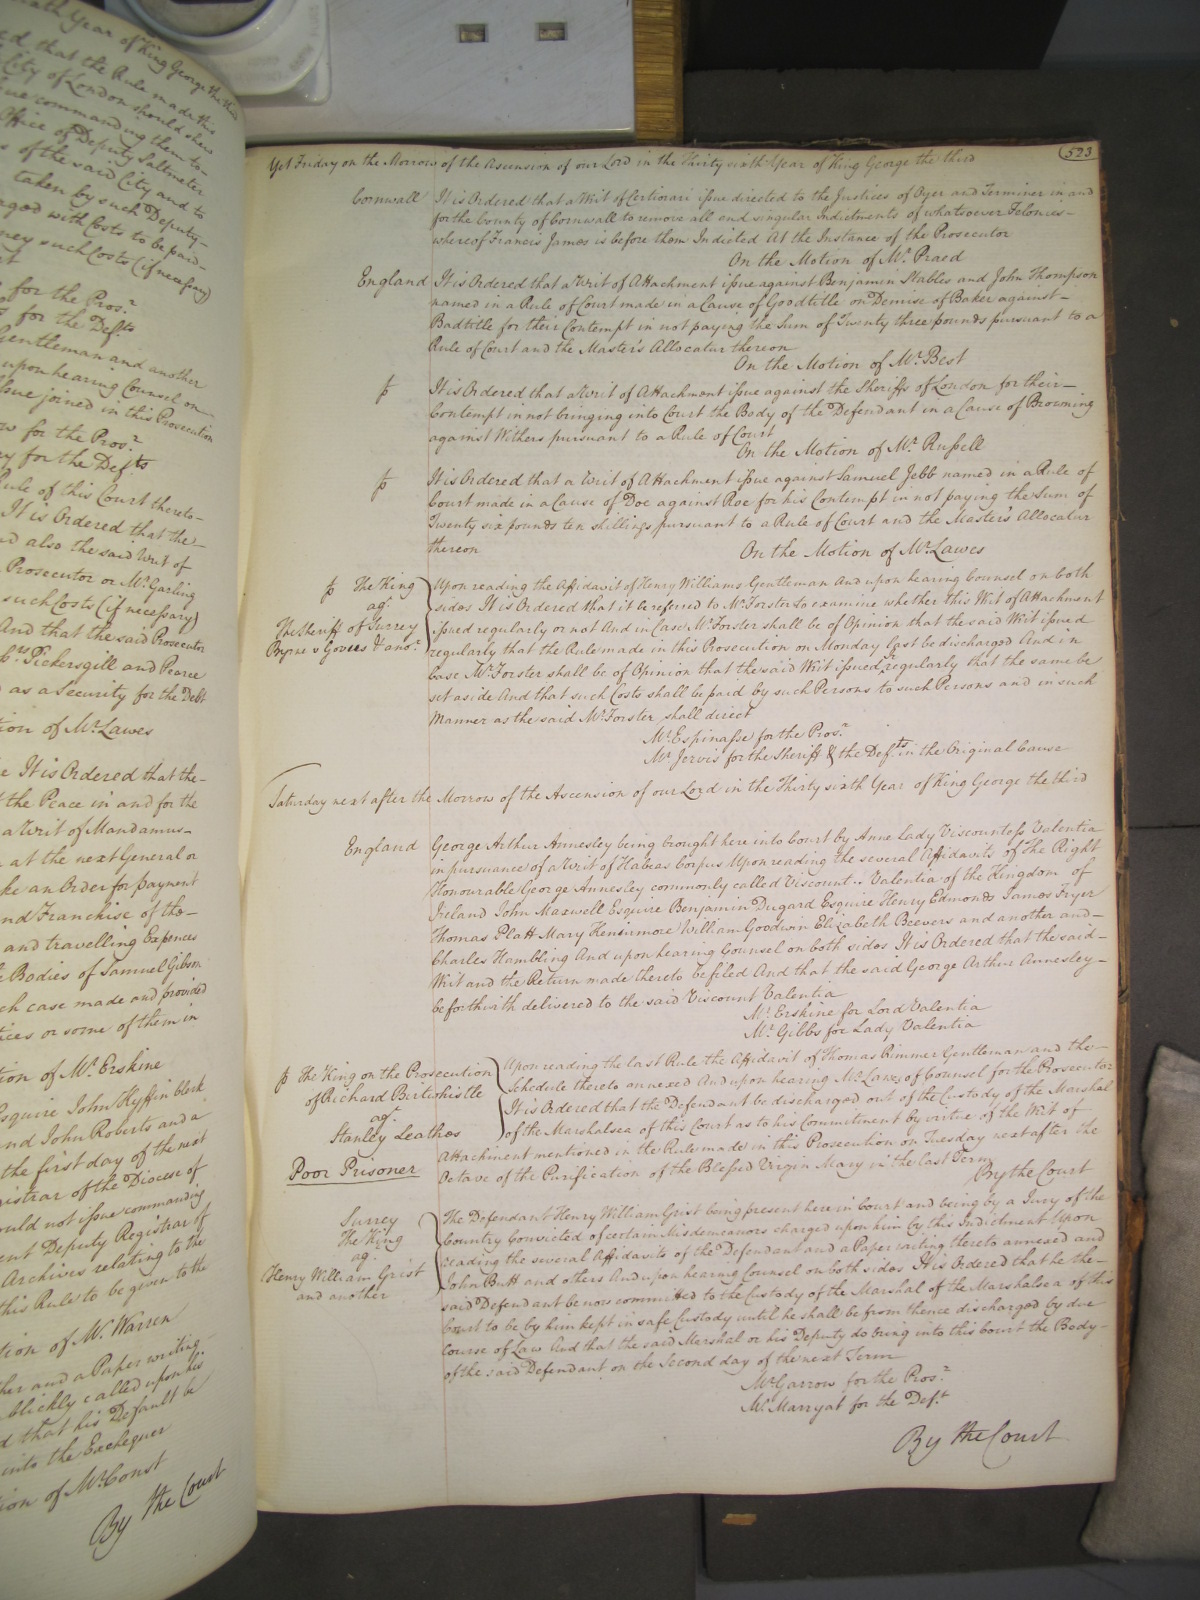 nth Year of King George the third
ed, that the Rule made this
City of London should shew
sue commanding them to
Office of Deputy Saltmeter
s of the said City and to
taken by such Deputy
aged with Costs to be paid
ney such Costs (if necessary)
for the Pros.r
for the Def.ts
Gentleman and another
upon hearing Counsel on
Issue joined in this Prosecution
ow for the Pros.r
ey for the Def.ts
Rule of this Court thereto
It is Ordered that the
nd also the said Writ of
Prosecutor or Mr. Garling
such Costs (if necessary)
And that the said Prosecutor
Pickersgill and Pearce
as a Security for the Debt
tion of Mr. Lawes
e It is Ordered that the
the Peace in and for the
a Writ of Mandamus
at the next General or
ke an Order for payment
nd Franchise of the
and travelling Expences
e Bodies of Samuel Gibson
ch case made and provided
tices or some of them in
tion of Mr. Erskine
Esquire John Kyffin Clerk
nd John Roberts and a
the first day of the next
istrar of the Diocese of
ould not issue commanding
ent Deputy Registrar of
Archives relating to the
this Rule to be given to the
tion of Mr. Warren
her and a Paper writing
blickly called upon his
d that his Default be
into the Exchequer
ion of Mr. Const
By the Court
523
Yet Friday on the Morrow of the Ascension of our Lord in the Thirty sixth Year of King George the third
Cornwall It is Ordered that a Writ of Certiorari issue directed to the Justices of Oyer and Terminer in and
for the County of Cornwall to remove all and singular Indictments of whatsoever Felonies
whereof Francis James is before them Indicted At the Instance of the Prosecutor
On the Motion of Mr. Praed
England It is Ordered that a Writ of Attachment issue against Benjamin Stables and John Thompson
named in a Rule of Court made in a Cause of Goodtitle on Demise of Baker against
Badtitle for their Contempt in not paying the Sum of Twenty three pounds pursuant to a
Rule of Court and the Master's Allocatur thereon
On the Motion of Mr. Best
It is Ordered that a Writ of Attachment issue against the Sheriffs of London for their
Contempt in not bringing into Court the Body of the Defendant in a Cause of Browning
against Withers pursuant to a Rule of Court
On the Motion of Mr. Russell
It is Ordered that a Writ of Attachment issue against Samuel Jebb named in a Rule of
Court made in a Cause of Doe against Roe for his Contempt in not paying the Sum of
Twenty six pounds ten shillings pursuant to a Rule of Court and the Master's Allocatur
thereon
On the Motion of Mr. Lawes
The King
agt.
The Sheriff of Surrey
Byrne v Govers & anor.
Upon reading the Affidavit of Henry Williams Gentleman And upon hearing Counsel on both
sides It is Ordered that it be referred to Mr. Forster to examine whether this Writ of Attachment
issued regularly or not And in Case Mr. Forster shall be of Opinion that the said Writ issued
regularly that the Rule made in this Prosecution on Monday last be discharged And in
Case Mr. Forster shall be of Opinion that the said Writ issued regularly that the same be
set aside And that such Costs shall be paid by such Persons to such Persons and in such
Manner as the said Mr. Forster shall direct
Mr. Espinasse for the Pros.r
Mr. Jervis for the Sheriff & the Def.ts in the Original Cause
Saturday next after the Morrow of the Ascension of our Lord in the Thirty sixth Year of King George the third
England George Arthur Annesley being brought here into Court by Anne Lady Viscountess Valentia
in pursuance of a Writ of Habeas Corpus Upon reading the several Affidavits of The Right
Honourable George Annesley commonly called Viscount Valentia of the Kingdom of
Ireland John Maxwell Esquire Benjamin Dugard Esquire Henry Edmonds James Fryer
Thomas Platt Mary Kenurmore William Goodwin Elizabeth Beevers and another and
Charles Hambling And upon hearing Counsel on both sides It is Ordered that the said
Writ and the Return made thereto be filed And that the said George Arthur Annesley
be forthwith delivered to the said Viscount Valentia
Mr. Erskine for Lord Valentia
Mr. Gibbs for Lady Valentia
The King on the Prosecution
of Richard Birtwhistle
agt.
Stanley Leathes
Poor Prisoner
Upon reading the last Rule the Affidavit of Thomas Rimmer Gentleman and the
Schedule thereto annexed And upon hearing Mr. Lawes of Counsel for the Prosecutor
It is Ordered that the Defendant be discharged out of the Custody of the Marshal
of the Marshalsea of this Court as to his Commitment by virtue of the Writ of
Attachment mentioned in the Rule made in this Prosecution on Tuesday next after the
Octave of the Purification of the Blessed Virgin Mary in the last Term
By the Court
Surrey
The King
agt.
Henry William Grist
and another
The Defendant Henry William Grist being present here in Court and being by a Jury of the
Country Convicted of certain Misdemeanors charged upon him by this Indictment Upon
reading the several Affidavits of the Defendant and a Paper writing thereto annexed and
John Butt and others And upon hearing Counsel on both sides It is Ordered that he the
said Defendant be now committed to the Custody of the Marshal of the Marshalsea of this
Court to be by him kept in safe Custody until he shall be from thence discharged by due
course of Law And that the said Marshal or his Deputy do bring into this Court the Body
of the said Defendant on the Second day of the next Term
Mr. Garrow for the Pros.r
Mr. Marryat for the Def.t
By the Court